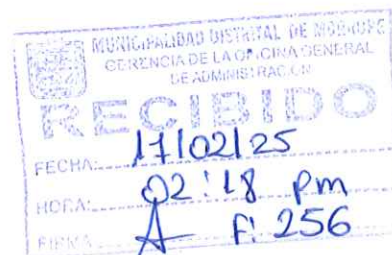 MUNICIPALIDAD DISTRITAL DE MORROPE
GERENCIA DE LA OFICINA GENERAL
DE ADMINISTRACION
RECIBIDO
FECHA: 17/02/25
HORA: 02:18 pm
FIRMA F: 256